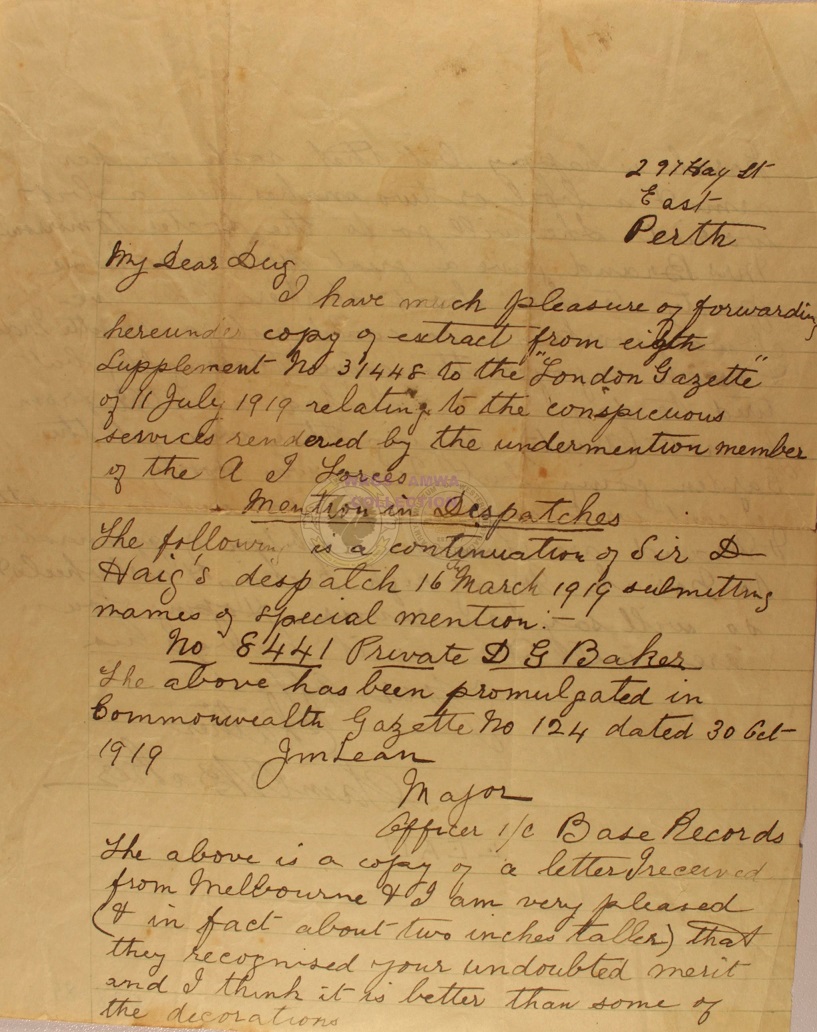 297 Hay St
East
Perth
My Dear Dug
I have much pleasure of forwarding
hereunder copy of extract from eigth
Supplement No 31448 to the "London Gazette"
of 11 July 1919 relating to the conspicuous
services rendered by the undermention member
of the A I Forces
Mention in Despatches
The following is a continuation of Sir D
Haig's despatch 16th March 1919 submitting
names of special mention:-
No 8441 Private D G Baker
The above has been promulgated in
Commonwealth Gazette No 124 dated 30 Oct
1919 J M Lean
Major
Officer i/c Base Records
The above is a copy of a letter I received
from Melbourne & I am very pleased
(& in fact about two inches taller) that
they recognised your undoubted merit
and I think it is better than some of
the decorations